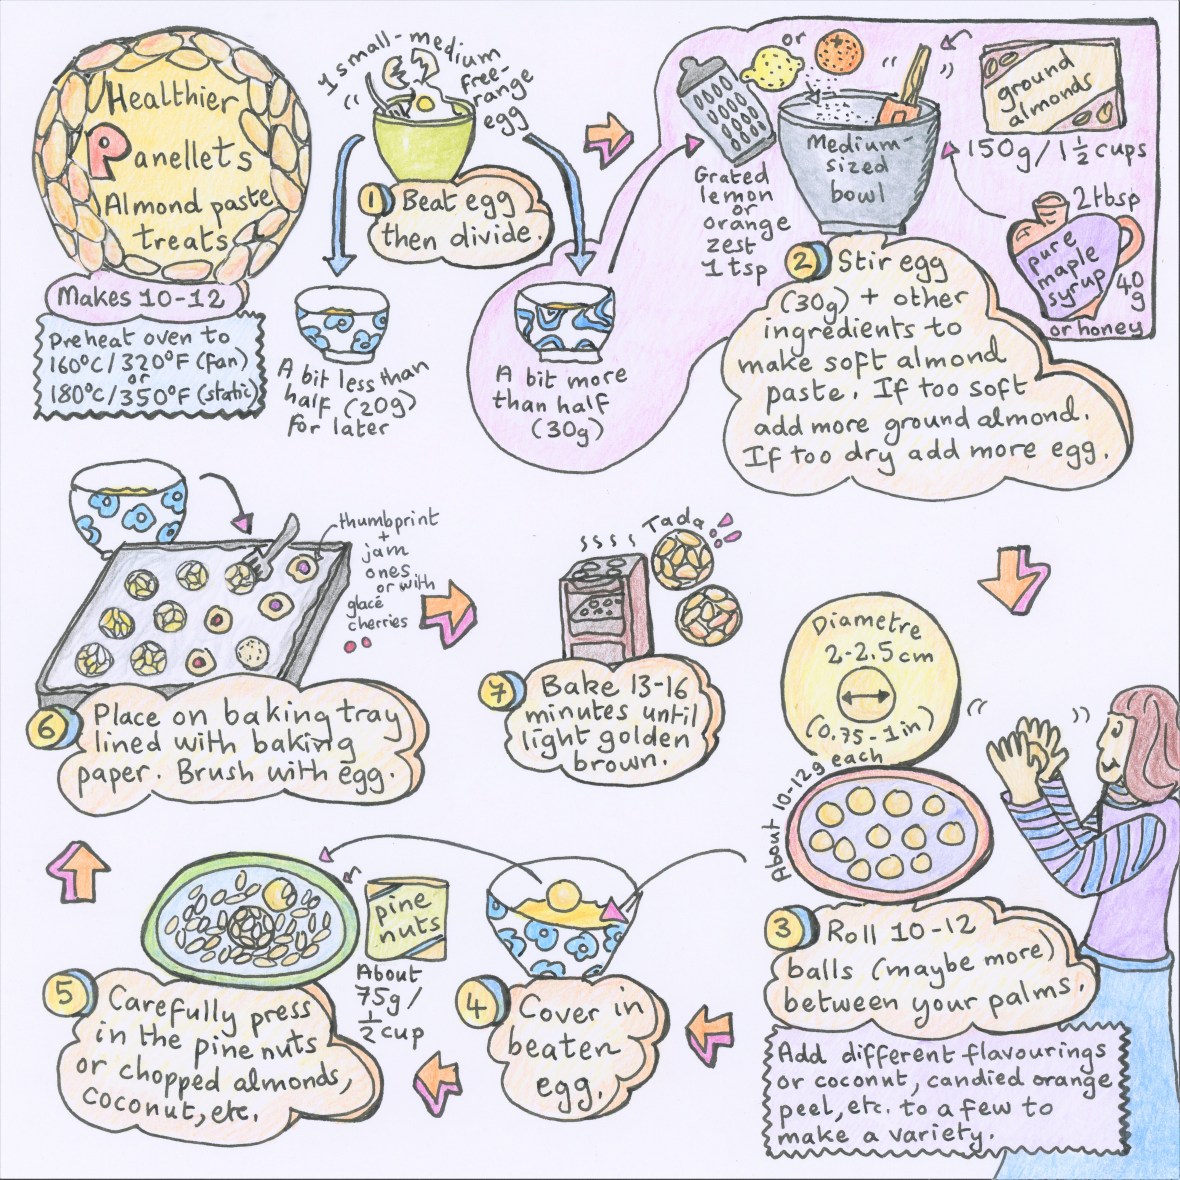 Healthier
Panellets
Almond paste
treats
Makes 10-12
Preheat oven to
160°C/320°F (fan)
or
180°C/350°F (static)
1 small-medium
free-
range
egg
1 Beat egg
then divide.
A bit less than
half (20g)
for later
A bit more
than half
(30g)
or
Grated
lemon
or
orange
zest
1 tsp
Medium-
sized
bowl
ground
almonds
150g/1½ cups
2 tbsp
pure
maple
syrup
40
g
or honey
2 Stir egg
(30g) + other
ingredients to
make soft almond
paste. If too soft
add more ground almond.
If too dry add more egg.
Diametre
2-2.5cm
(0.75-1in)
About 10-12g each
3 Roll 10-12
balls (maybe more)
between your palms.
Add different flavourings
or coconut, candied orange
peel, etc. to a few to
make a variety.
4 Cover in
beaten
egg.
pine
nuts
About
75g/
½ cup
5 Carefully press
in the pine nuts
or chopped almonds,
coconut, etc.
thumbprint
+
jam
ones
or with
glacé
cherries
6 Place on baking tray
lined with baking
paper. Brush with egg.
Tada
7 Bake 13-16
minutes until
light golden
brown.